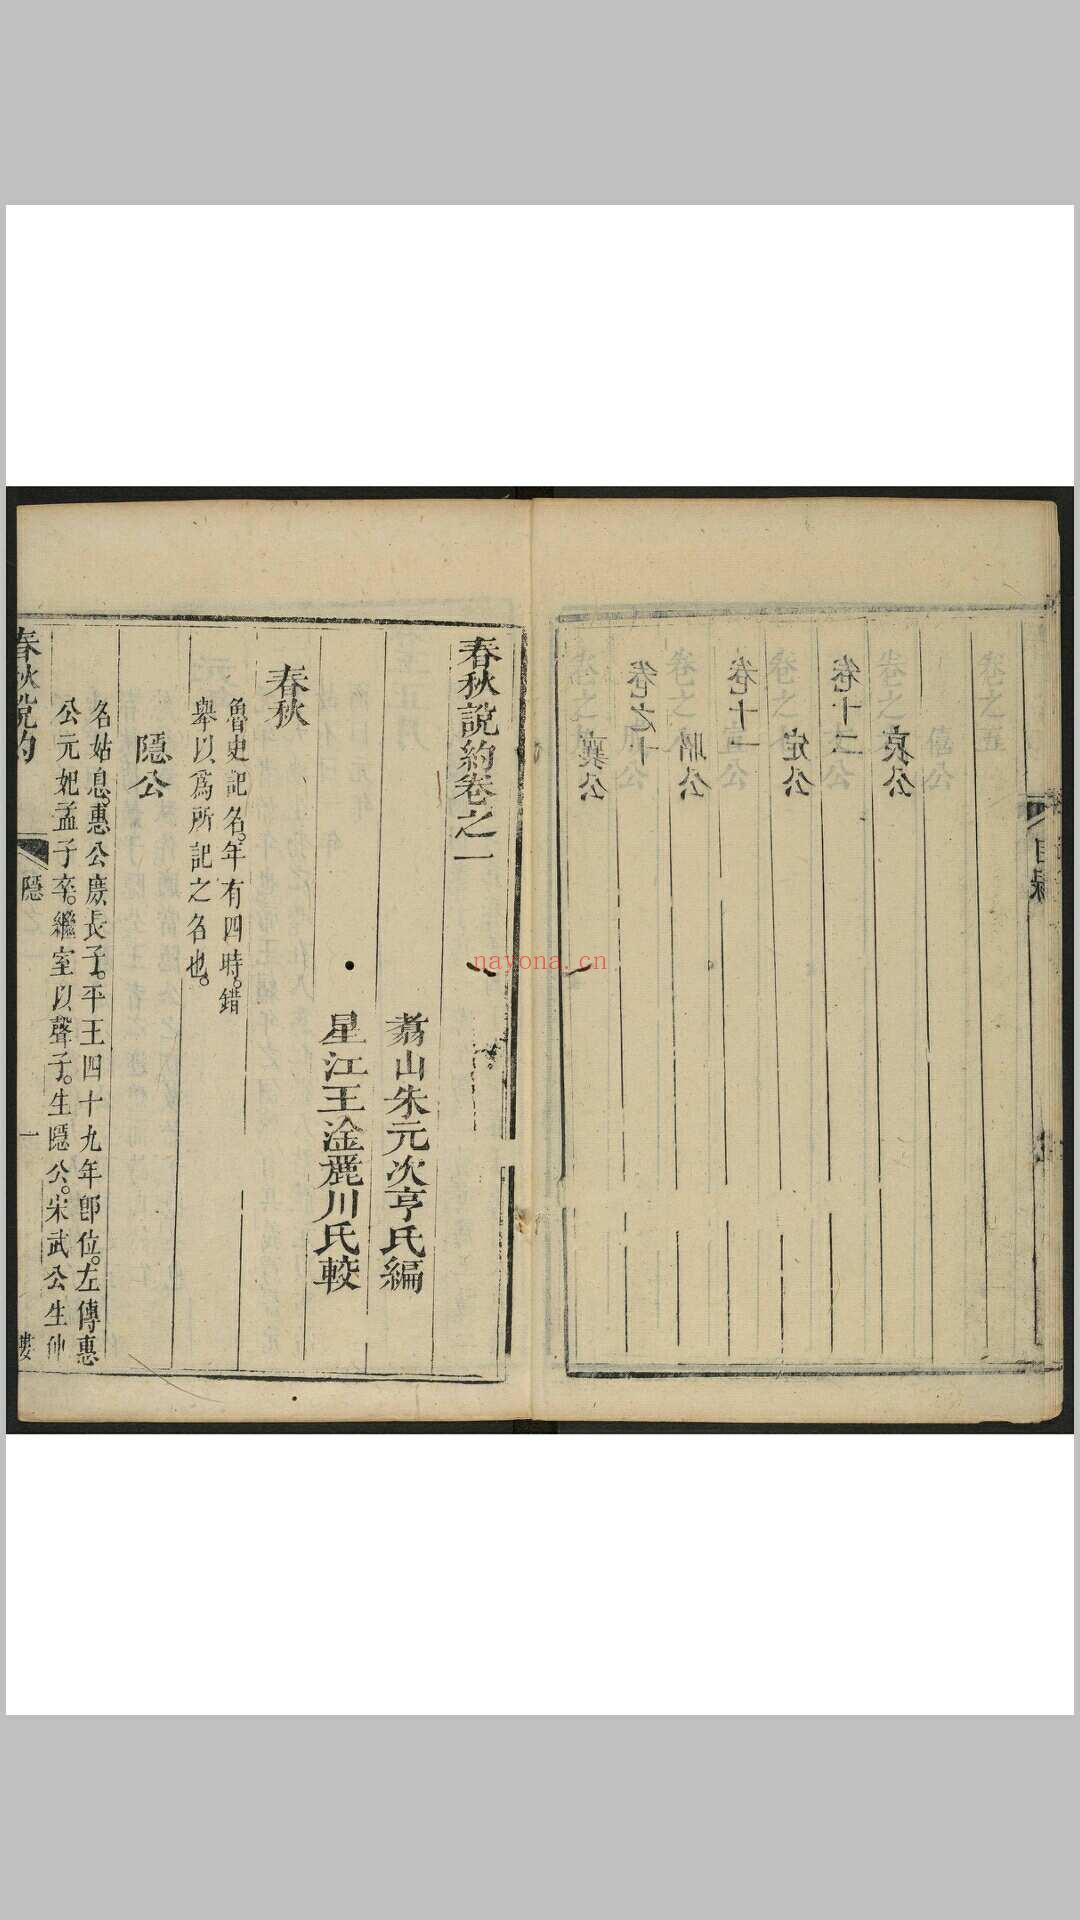 春秋說約卷之一
翥山朱元次亨氏編
星江王淦麗川氏較
春秋
魯史記名。年有四時。錯
舉以爲所記之名也。
隱公
名姑息。惠公庶長子。平王四十九年卽位。左傳惠
公元妃孟子卒。繼室以聲子。生隱公。宋武公生仲
春秋說約
隱
一
目錄
卷十二
哀公
定公
卷十一
昭公
卷之十
襄公
nayona.cn